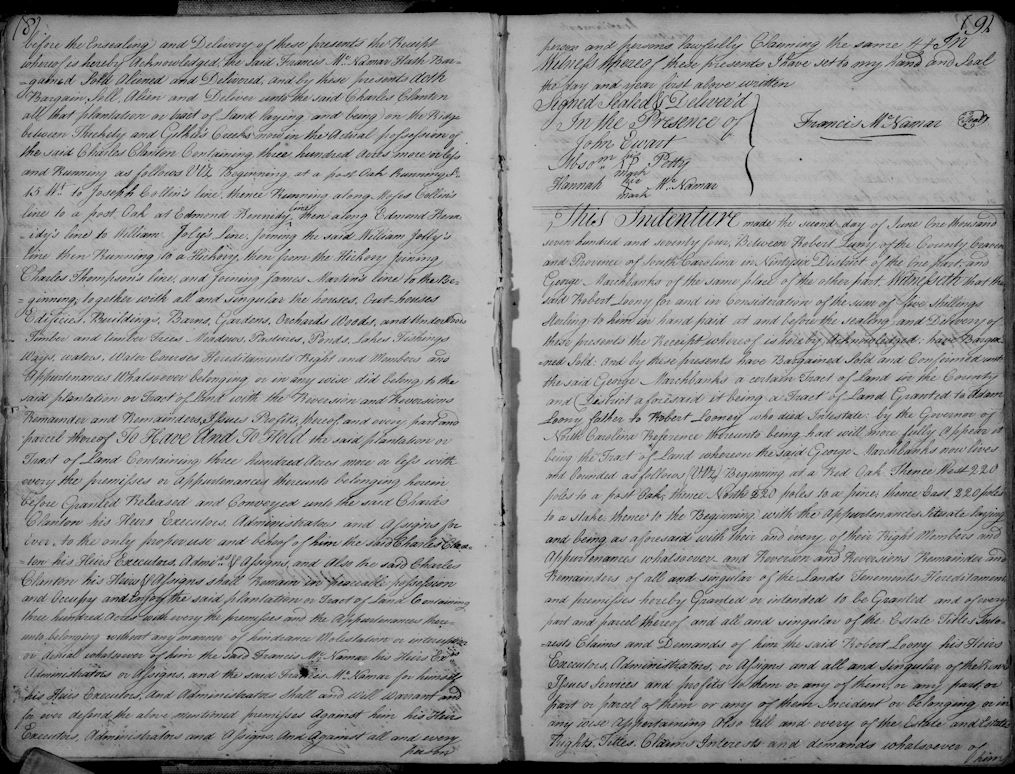 (8)
before the Ensealing and Delivery of these presents the Receipt
whereof is hereby Acknowledged, the Said Francis Mc Namar Hath Bar-
-gained Sold, Aliened and Delivered, and by these presents doth
Bargain, Sell, Alien and Deliver unto the said Charles Clanton
all that plantation or tract of land laying and being on the Ridge
between Thickety and Creeks now in the actual possession of
the said Charles Clanton Containing three hundred Acres more or less
and Running as follows Viz Beginning at a post Oak Running
15 Wt to Joseph Collin's line, thence Running along Moses Collin's
line to a post Oak at Edmond Kennidy line then along Edmond Kenn-
-idy's line to William Jolly's Line, Joining the said William Jolly's
line then Running to a Hickory, then from the Hickory joining
Charles Thompson's line, and joining James Martin's line to the Be-
-ginning, together with all and singular the houses, Out-houses
Edifices, Buildings, Barns, Gardens, Orchards Woods, and Under Woods
Timber and timber Trees Meadows, Pastures, Ponds, Lakes Fishings
Ways, waters, Water Courses Hereditaments Right and Members and
Appurtenances Whatsoever belonging or in any wise did belong to the
said plantation or Tract of Land with the Reversion and Reversions
Remainder and Remainders, Issues Profits, thereof and every part and
parcel thereof To Have And To Hold the said plantation or
Tract of Land Containing three hundred Acres more or less with
every the premisses or Appurtenances thereunto belonging herein
before Granted Released and Conveyed unto the said Charles
Clanton his Heirs Executors, Administrators and Assigns for
Ever to the only proper use and behoof of him the said Charles Clan-
-ton his Heirs Executors, Admrs & Assigns, and Also the said Charles
Clanton his Heirs & Assigns shall Remain in peaceable possession
and Occupy and Enjoy the said plantation or Tract of Land Containing
three hundred Acres with every the premisses and the Appurtenances there-
unto belonging without any manner of hindrance Molestation or interuption
or denial whatsoever of him the said Francis Mc Namar his Heirs Ex
Administrators or Assigns, and the said Francis Mc Namar for himself
his Heirs Executors, And Administrators shall and will Warrant and
for ever defend the above mentioned premisses Against him his Heirs
Executors, Administrators and Assigns, And Against all and every
person
(9)
person and persons lawfully Claiming the same In
Witness whereof these presents I have set to my hand and Seal
the day and year first above written
Signed Sealed & Deliver'd
In the Presence of
John Ewart
his
Petty
mark
Hannah her Mc Namar
mark
Francis Mc Namar Seal
This Indenture made the second day of June One thousand
seven hundred and seventy four, Between Robert Luny of the County Craven
and Province of South Carolina in Nintysix District of the One part, and
George Marchbanks of the same place of the other part. Witnesseth that the
said Robert Loony for and in Consideration of the sum of five shillings
Sterling to him in hand paid at and before the sealing and Delivery of
these presents the Receipt whereof is hereby Acknowledged have Bargai
ned Sold and by these presents have Bargained Sold and Confirmed unto
the said George Marchbanks a certain Tract of Land in the County
and District aforesaid it being a Tract of Land Granted to Adam
Loony father to Robert Looney who died Intestate by the Governor of
North Carolina Reference thereunto being had will more fully Appear it
being the Tract of Land whereon the said George Marchbanks now lives
and bounded as follows (Viz) Beginning at a Red Oak Thence West 220
poles to a post Oak, thence North 220 poles to a pine, thence East 220 poles
to a stake, thence to the Beginning with the Appurtenances laying
and being as aforesaid with their and every of their Right Members and
Appurtenances whatsoever and Reversion and Reversions Remainder and
Remainders of all and singular of the Lands Tenements Hereditament
and premisses hereby Granted or intended to be Granted and of every
part and parcel thereof and all and singular of the Estate Titles Inte-
-rests Claims and Demands of him the said Robert Loony his Heirs
Executors, Administrators, or Assigns and all and singular of the Rents
Issues Services and profits to them or any of them, or any part, or
part or parcel of them or any of them Incident or belonging or in
any wise Appertaining Also all and every of the Estate and Estates
Rights, Titles, Claims Interests and demands whatsoever of
him